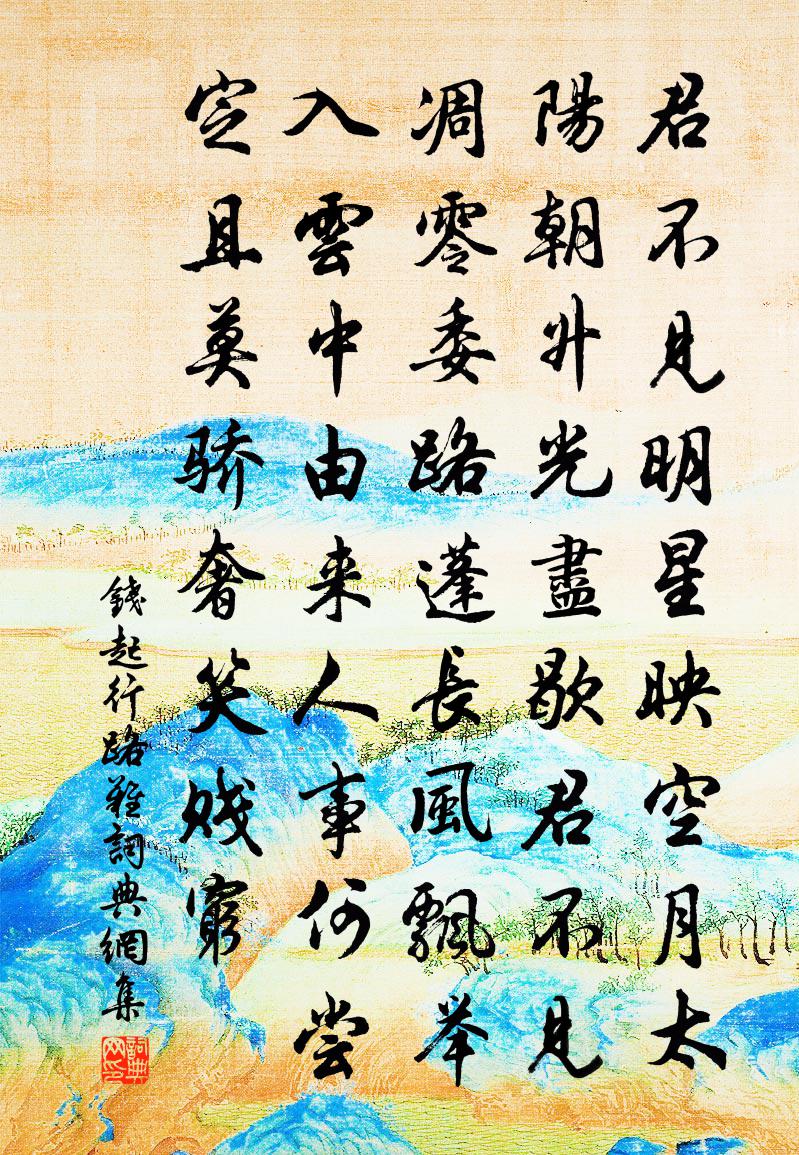 君不見明星映空月太
陽朝升光盡歇君不見
凋零委路蓬長風飄举
入雲中由来人事何尝
定且莫骄奢笑贱窮
錢起行路難詞典網集
詞典网印